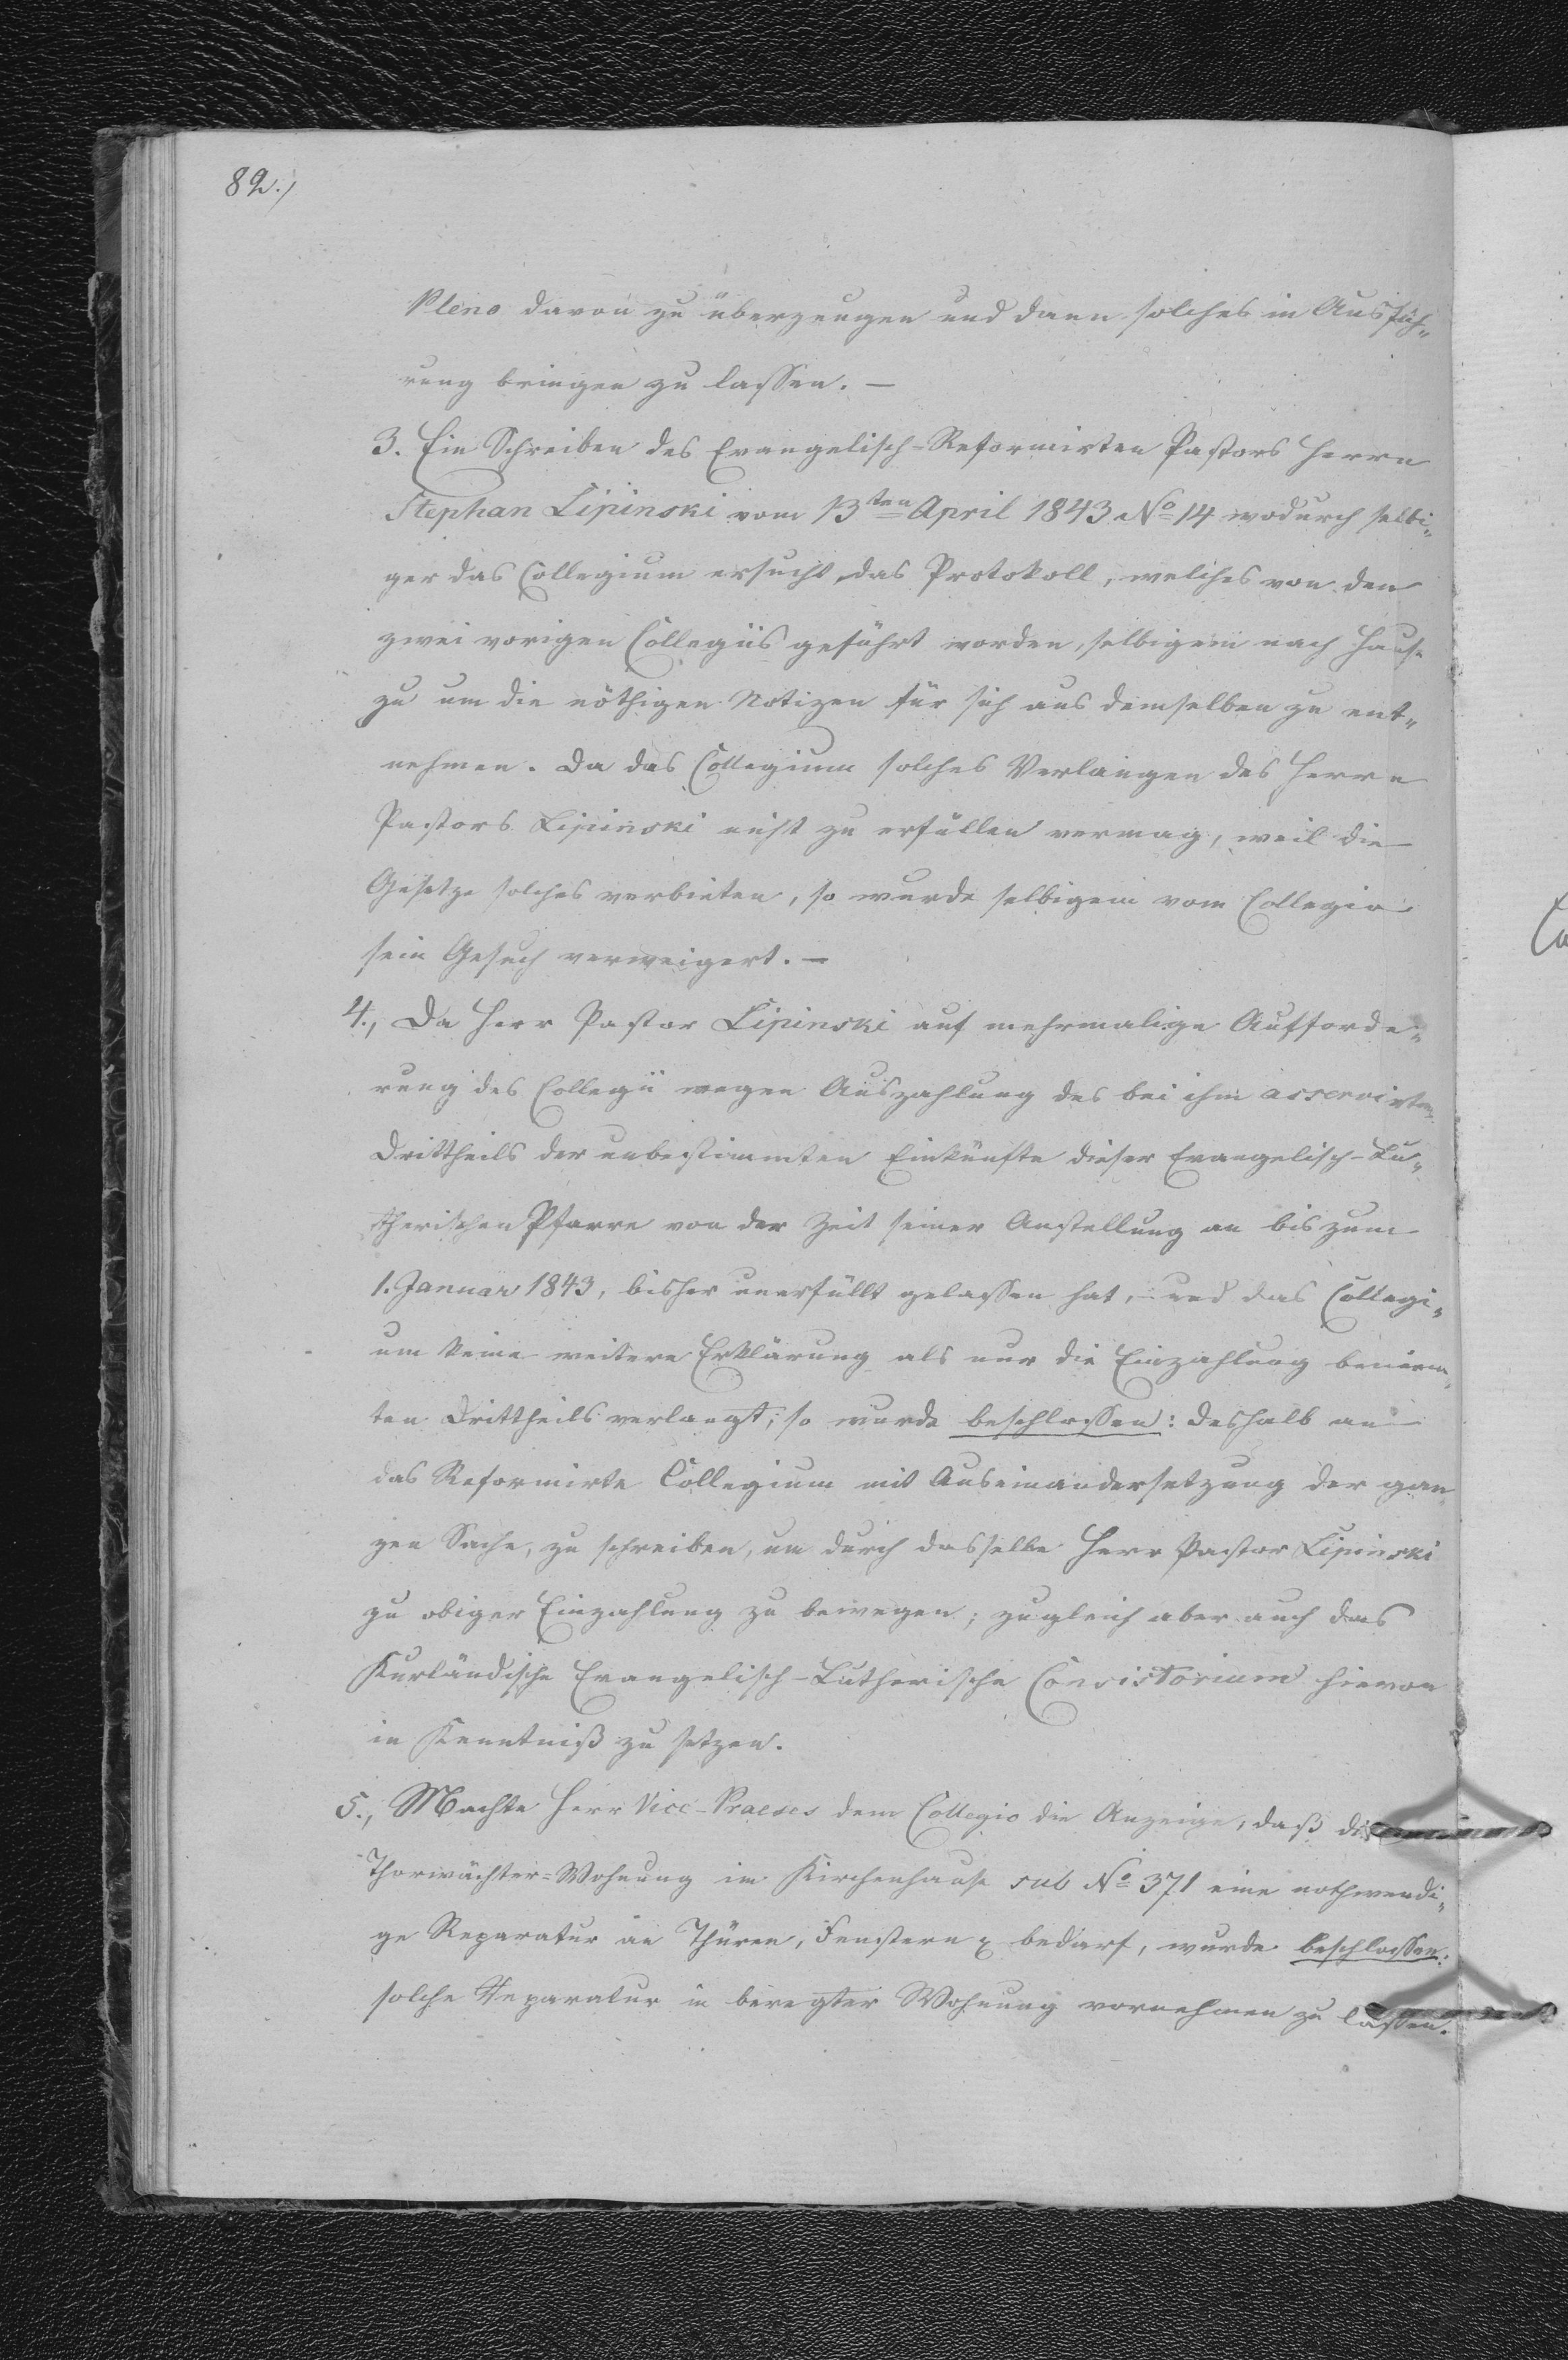 82.)
Pleno davon zu überzeugen und dann solches in Ausfüh„
rung bringen zu lassen. —
3. Ein Schreiben des Evangelisch-Reformirten Pastors Herrn
Stephan Lipinski vom 13ten April 1843 No 14 wodurch selbi„
ger das Collegium ersucht, das Protokoll, welches von den
zwei vorigen Collegiis geführt worden, selbigem nach Hause
zu um die nöthigen Notizen für sich aus demselben zu ent„
nehmen. Da das Collegium solches Verlangen des Herrn
Pastors Lipinski nicht zu erfüllen vermag, weil die
Gesetze solches verbieten, so wurde selbigem vom Collegio
sein Gesuch verweigert. —
4., Da Herr Pastor Lipinski auf mehrmalige Aufforde„
rung des Collegii wegen Auszahlung des bei ihm asservirten
Drittheils der unbestimmten Einkünfte dieser Evangelisch-Lu„
therischen Pfarre von der Zeit seiner Anstellung an bis zum
1. Januar 1843, bisher unerfüllt gelassen hat, und das Collegi„
um keine weitere Erklärung als nur die Einzahlung
ten Drittheils verlangt; so wurde beschlossen: deshalb an
das Reformirte Collegium mit Auseinandersetzung der gan„
zen Sache, zu schreiben, um durch dasselbe Herr Pastor Lipinski
zu obiger Einzahlung zu bewegen; zugleich aber auch das
Kurländische Evangelisch-Lutherische Consistorium hievon
in Kenntniß zu setzen.
5., Machte Herr Vice-Praeses dem Collegio die Anzeige, daß die
Thorwächter-Wohnung im Kirchenhause sub No 371 eine nothwendi„
ge Reparatur an Thüren, Fenstern bedarf, wurde beschlossen:
solche Reparatur in beregter Wohnung vornehmen zu lassen.